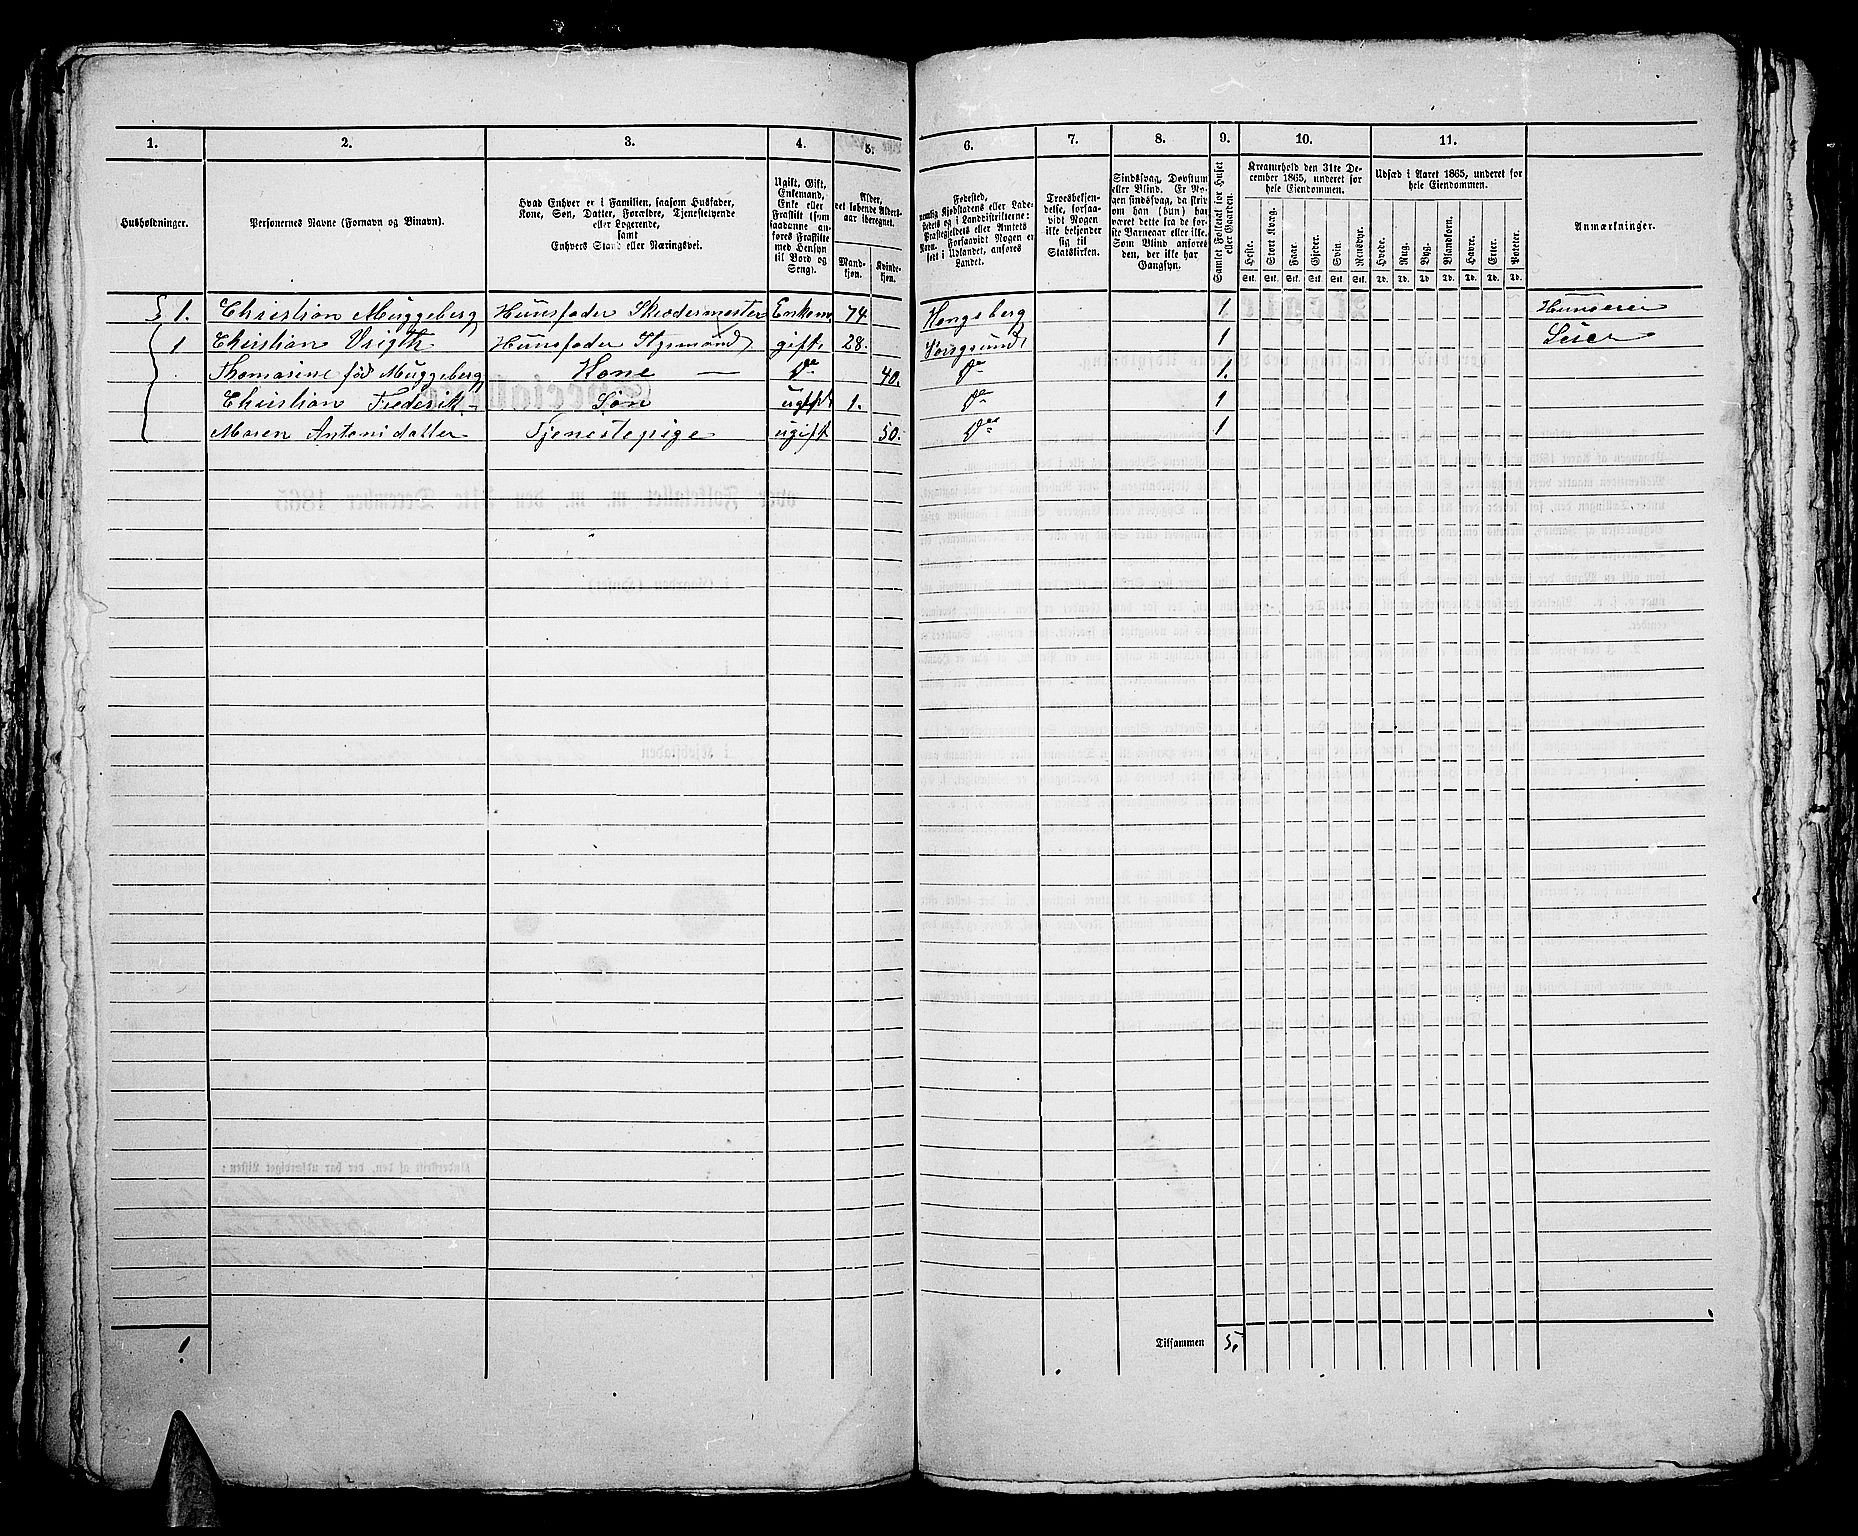 1. 2. 3. 4. 5. 6. 7. 8. 9. 10. 11.
Husholdninger.
Personernes Navne (Fornavn og Binavn).
Hvad Enhver er i Familien, saasom Husfader,
Kone, Søn, Datter, Forældre, Tjenestetyende
eller Logerende,
samt
Enhvers Stand eller Næringsvei.
Ugift, Gift,
Enkemand,
Enke eller
Fraskilt (som
saadanne an-
føres Fraskilte
med Hensyn
til Bord og
Seng).
Alder,
det løbende Alders-
aar iberegnet.
Mand-
kjøn.
Kvinde-
kjøn.
Fødested,
nemlig Kjøbstadens eller Lade-
stedets og i Landdistrikterne:
Præstegjeldets eller Amtets
Navn. Forsaavidt Nogen er
født i Udlandet, anføres
Landet.
Troesbekjen-
delse, forsaa-
vidt Nogen
ikke bekjender
sig til
Statskirken.
Sindssvag, Døvstum
eller Blind. Er No-
gen sindssvag, da skriv
om han (hun) har
været dette fra de før-
ste Barneaar eller ikke.
Som Blind anføres
den, der ikke har
Gangsyn.
Samlet Folketal for Huset
eller Gaarden.
Kreaturhold den 31te De-
cember 1865, underet for
hele Eiendommen.
Heste. Stort Kvæg. Faar. Gjeder. Svin. Rensdyr.
Stk. Stk. Stk. Stk. Stk. Stk.
Udsæd i Aaret 1865, underet for
hele Eiendommen.
Hvede. Rug. Byg. Blandkorn. Havre. Erter. Poteter.
Td. Td. Td. Td. Td. Td. Td.
Anmærkninger.
1. Christian Muggeberg Huusfader Skrædermester Enkem. 74 Kongsberg 1. Huuseier
1 Christian Vrigth Huusfader gift 28. 1 Leier
Thomasine fød Muggeberg Kone — Do 40. Do 1.
Christian Frederik Søn ugift 1. Do 1
Maren Antonisdatter Tjenestepige ugift 50. Do 1
Tilsammen 5.